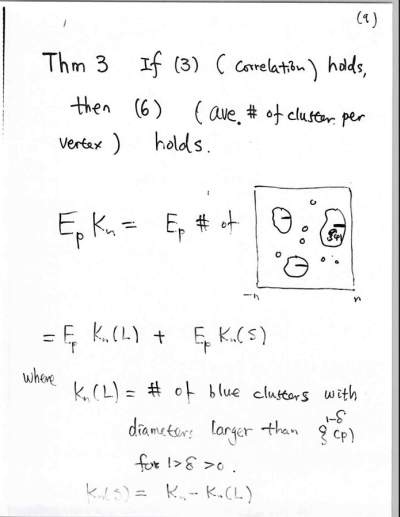 (9)
Thm 3 If (3) (correlation) holds,
then (6) (ave. # of cluster per
vertex) holds.
E_p K_n = E_p # of
ξ(p)
-n n
= E_p K_n(L) + E_p K_n(S)
where
K_n(L) = # of blue clusters with
diameters larger than ξ^{1-δ}(p)
for 1>δ>0.
K_n(S) = K_n - K_n(L)